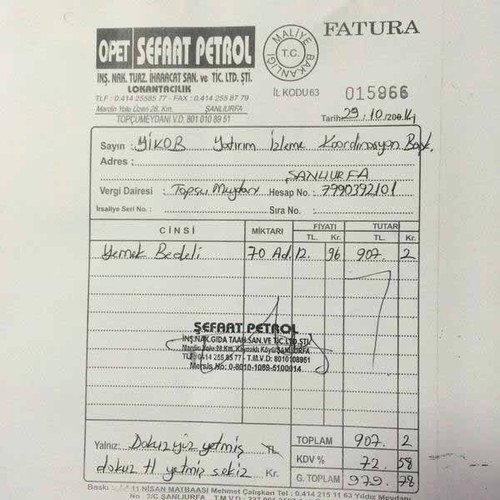 OPET ŞEFAAT PETROL
İNŞ. NAK. TURZ. İHRACAT SAN. ve TİC. LTD. ŞTİ.
LOKANTACILIK
TLF : 0.414 25585 77 - FAX : 0.414 255 87 79
Mardin Yolu Üzeri 28. Km. ŞANLIURFA
TOPÇUMEYDANI V.D. 801 010 89 51
MALİYE BAKANLIĞI
T.C.
FATURA
İL KODU 63 015966
Tarih: 29.10/2014
Sayın : YİKOB Yatırım İzleme Koordinasyon Başk.
Adres :
ŞANLIURFA
Vergi Dairesi : Hesap No.: 7990392101
İrsaliye Seri No. : Sıra No. :
CİNSİ MİKTARI FİYATI TUTAR
TL. Kr. TL. Kr.
Yemek Bedeli 70 Ad. 12. 96 907. 2
ŞEFAAT PETROL
İNŞ.NAK.GIDA TAAH.SAN.VE TİC.LTD.ŞTİ.
Mardin Yolu 28 Km. ŞANLIURFA
TLF: 0414 255 85 77 - T.M.V.D: 8010108951
Mersis No: 0-8010-1089-5100014
Yalnız: Dokuzyüz yetmiş TL
dokuz tl yetmiş sekiz Kr.
TOPLAM 907. 2
KDV % 72. 58
G. TOPLAM 979. 78
Baskı: NİSAN MATBAASI Mehmet Çalışkan Tel: 0.414 215 11 63 Yıldız Meydanı
No: 2/C ŞANLIURFA